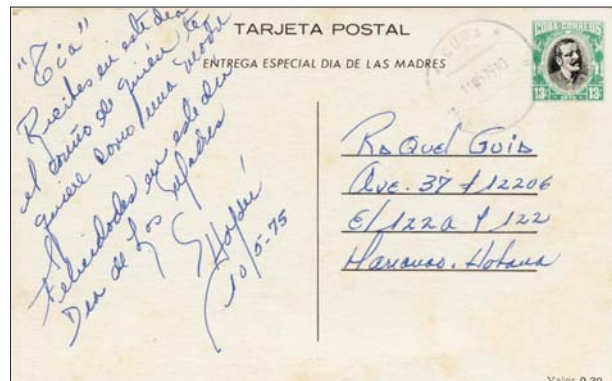 TARJETA POSTAL
ENTREGA ESPECIAL DIA DE LAS MADRES
CUBA CORREOS
13¢ 13¢
"Tia"
Recibes en este dia
el cariño de quién te
quiere como una madre
Felicidades en este dia
Dia de Los Madres
10/5-75
Raquel Guia
Ave. 37 # 12206
E/ 122A Y 122
Marianao. Habana
Valor 0.20